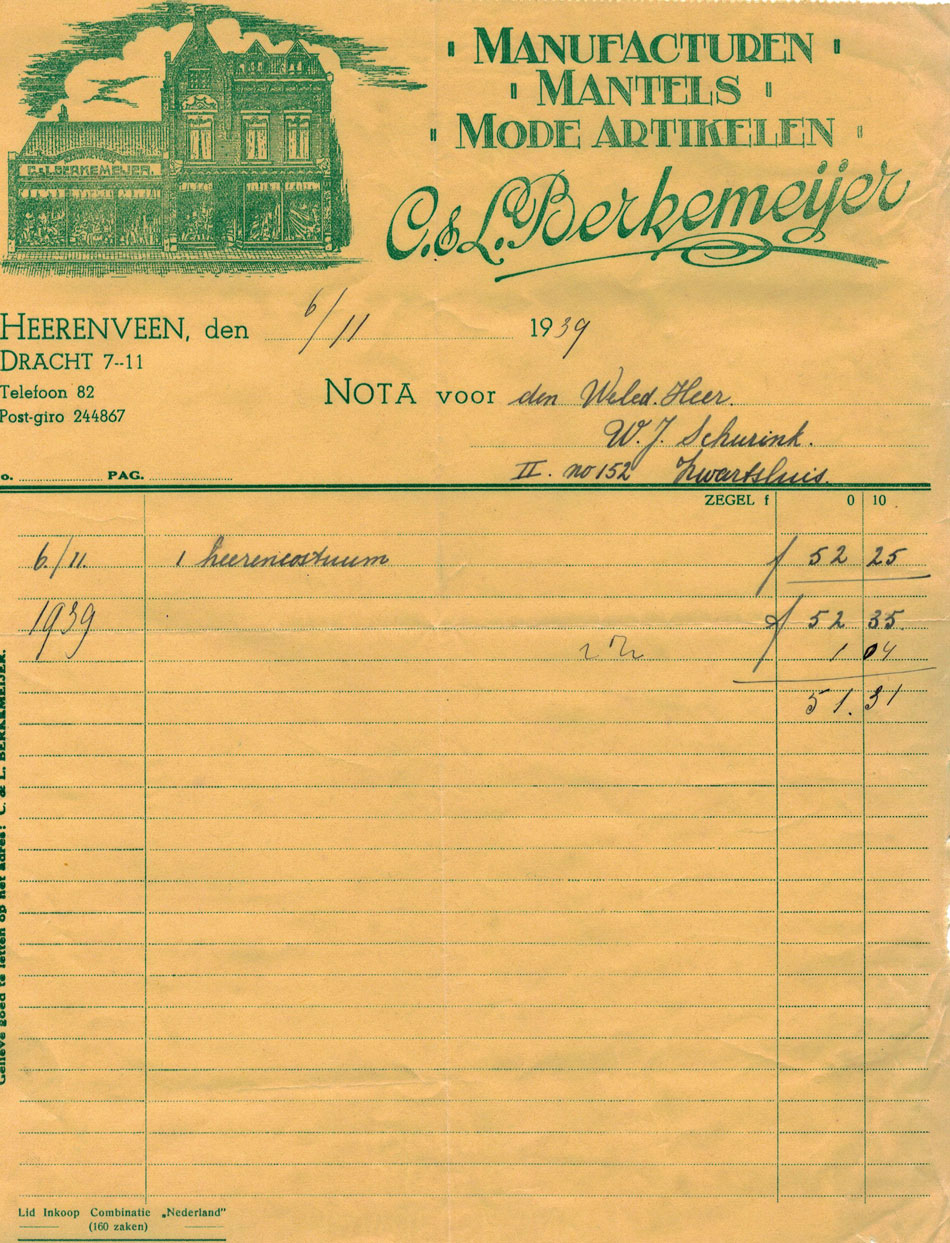 MANUFACTUREN
MANTELS
MODE ARTIKELEN
C. & L. Berkemeijer
C. & L. BERKEMEIJER.
HEERENVEEN, den 6/11 1939
DRACHT 7--11
Telefoon 82
Post-giro 244867
NOTA voor den Weled. Heer.
W. J. Schurink.
II. no 152 Zwartsluis.
o. PAG.
ZEGEL f 0 10
6/11. 1 heerencostuum f 52 25
1939 f 52 35.
1 04
51.31
Gelieve goed te letten op het adres: C. & L. BERKEMEIJER.
Lid Inkoop Combinatie „Nederland"
(160 zaken)